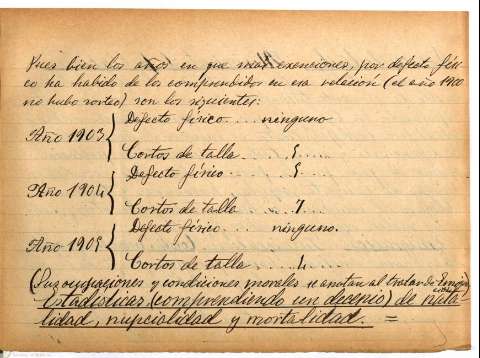 Pues bien los años en que mas exenciones, por defecto físi
co ha habido de los comprendidos en esa relación (el año 1900
no hubo sorteo) son los siguientes:
Año 1903 { Defecto físico... ninguno
Cortos de talla.... 5....
Año 1904 { Defecto físico.... 5....
Cortos de talla.... 7....
Año 1905 { Defecto físico.... ninguno.
Cortos de talla.... 4....
(Sus ocupaciones y condiciones morales se anotan al tratar de
Estadísticas (comprendiendo un decenio) de nata
lidad, nupcialidad y mortalidad. =